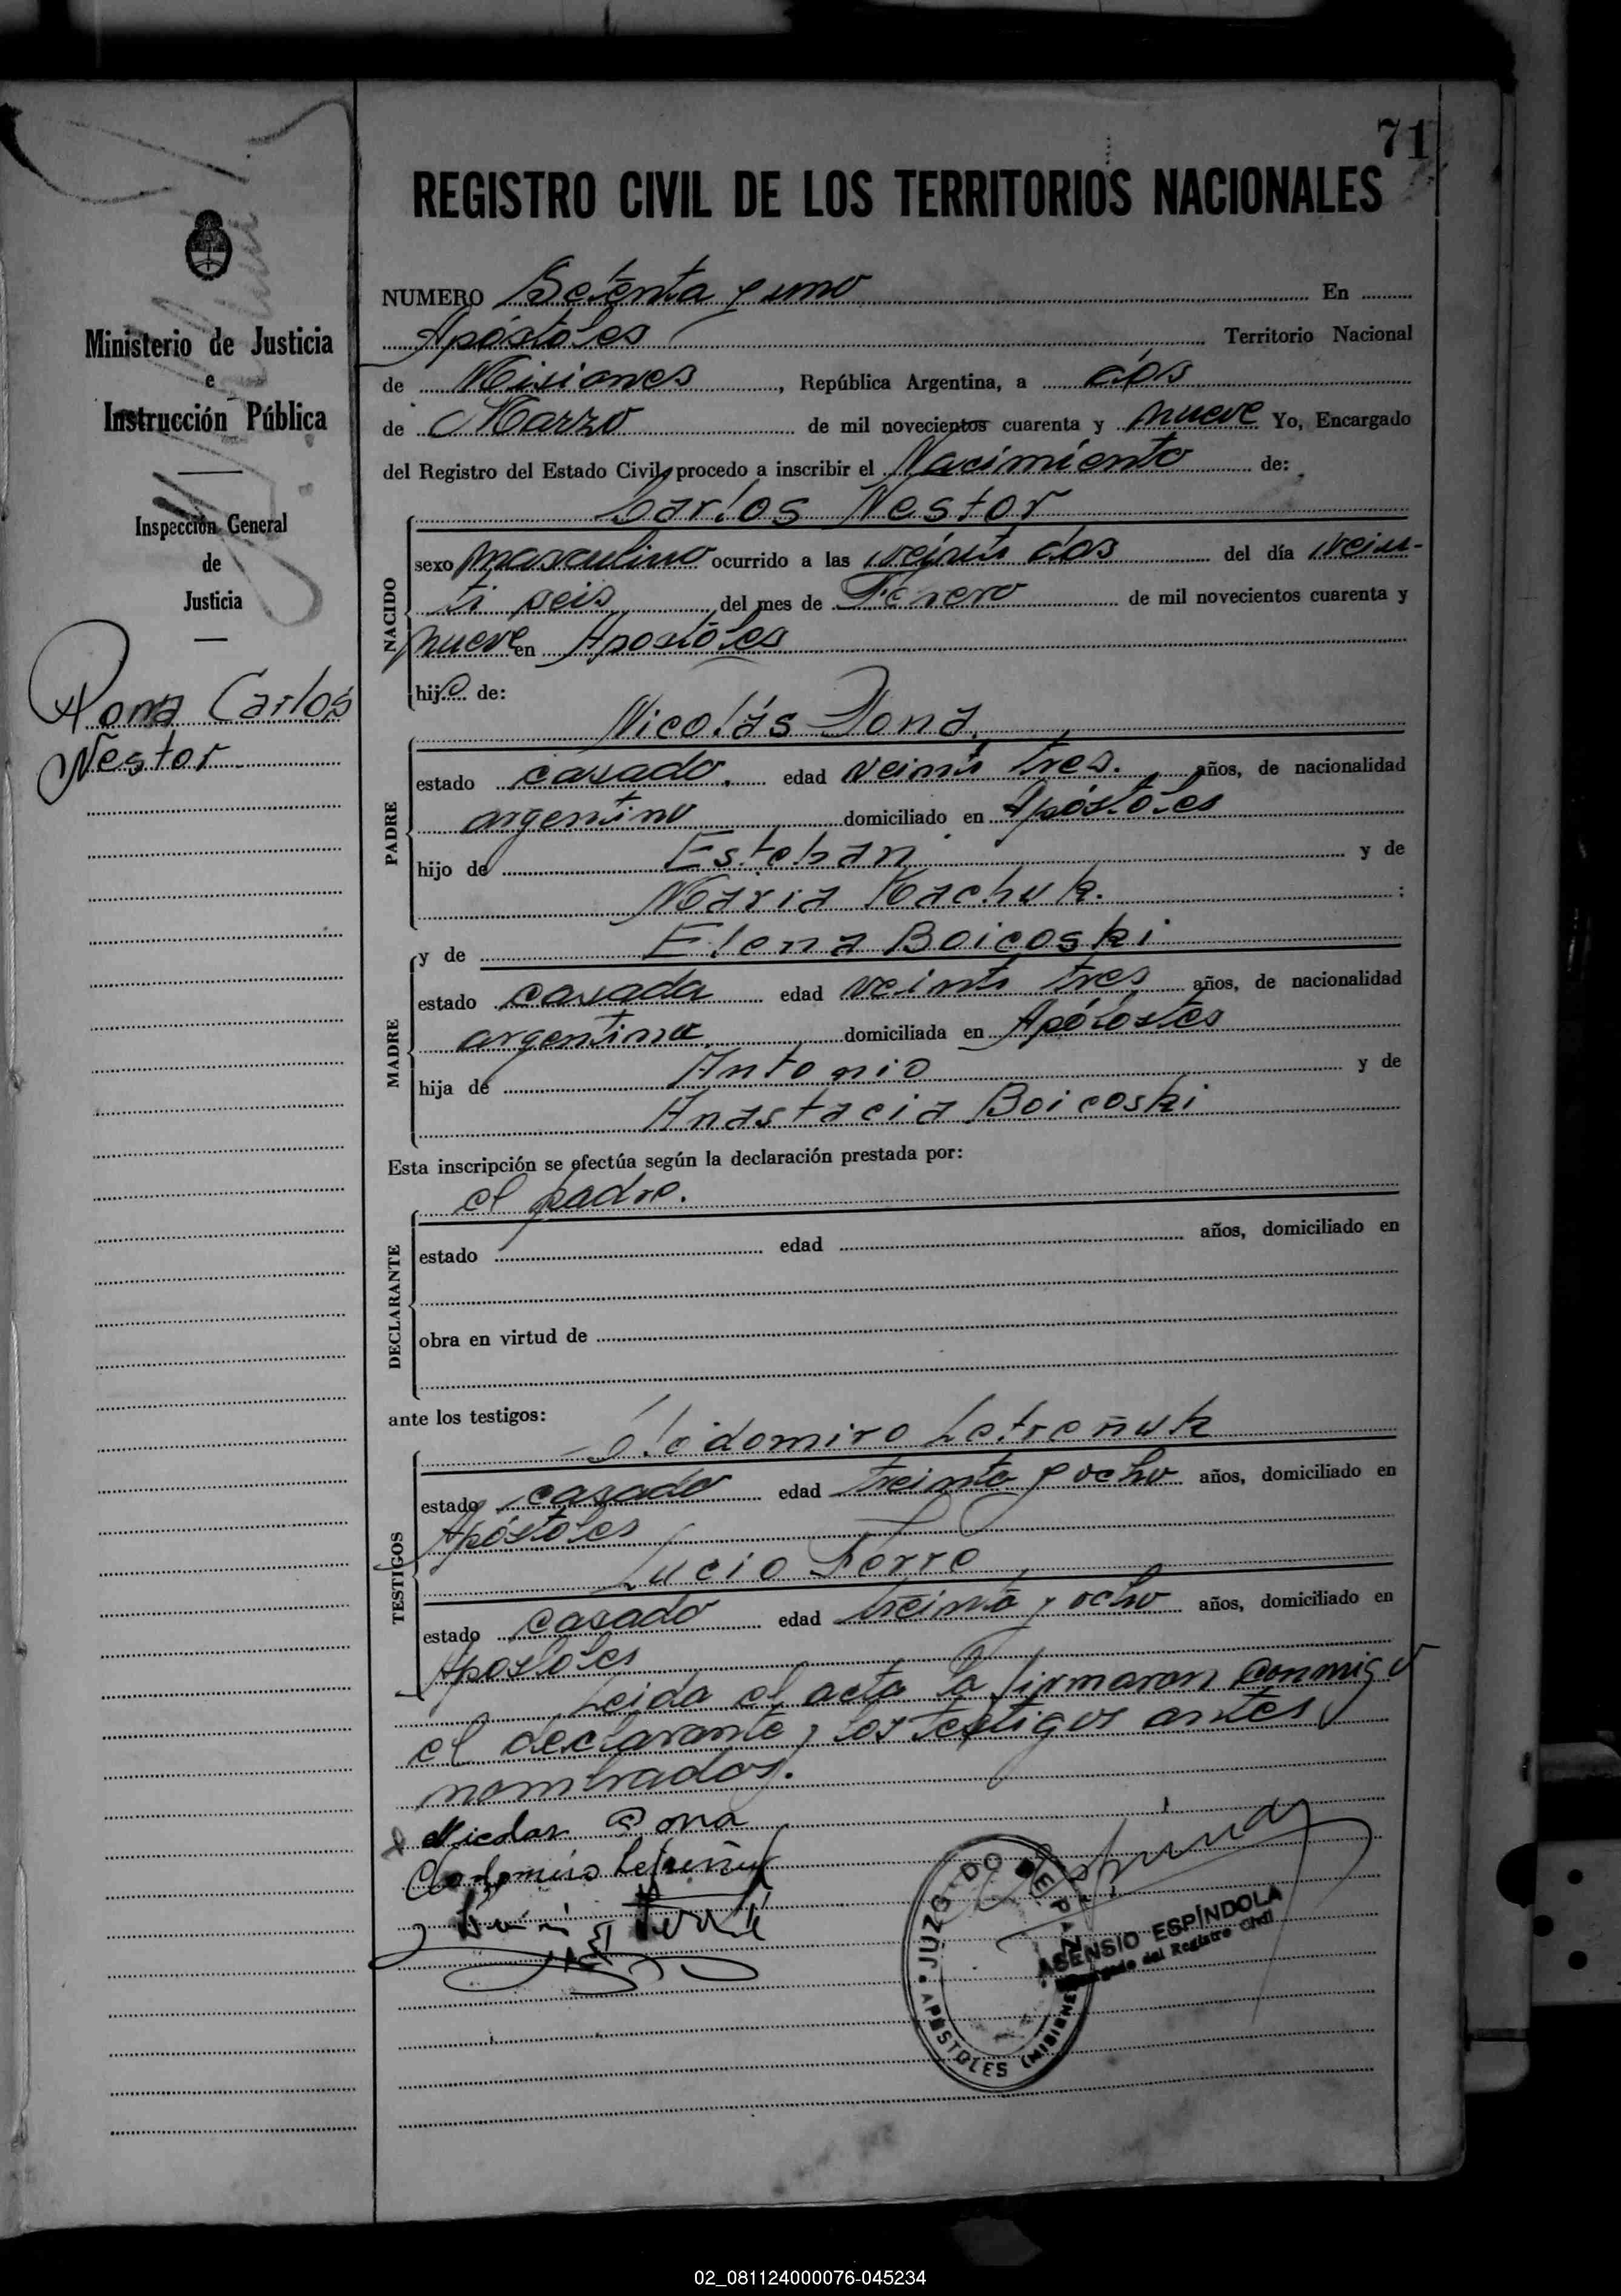 71
REGISTRO CIVIL DE LOS TERRITORIOS NACIONALES
Ministerio de Justicia
e
Instrucción Pública
Inspección General
de
Justicia
Dona Carlos
Nestor
NUMERO Setenta y uno En
Apóstoles Territorio Nacional
de Misiones, República Argentina, a dos
de Marzo de mil novecientos cuarenta y nueve Yo, Encargado
del Registro del Estado Civil, procedo a inscribir el Nacimiento de:
Carlos Nestor
NACIDO
sexo masculino ocurrido a las veinti dos del día vein-
ti seis del mes de Febrero de mil novecientos cuarenta y
nueve en Apostoles
hijo de:
Nicolás Dona
PADRE
estado casado. edad veinti tres. años, de nacionalidad
argentino domiciliado en Apóstoles
hijo de Esteban y de
Maria Kachuk. :
MADRE
y de Elena Boicoski
estado casada edad veinti tres años, de nacionalidad
argentina domiciliada en Apólostes
hija de Antonio y de
Anastacia Boicoski
Esta inscripción se efectúa según la declaración prestada por:
el padre.
DECLARANTE
estado edad años, domiciliado en
obra en virtud de
ante los testigos:
Clodomiro Letreñuk
TESTIGOS
estado casado edad treinta y ocho años, domiciliado en
Apóstoles
Lucio Ferre
estado casado edad treinta y ocho años, domiciliado en
Apostoles
Leida el acta la firmaran conmigo
el declarante y los testigos antes
nombrados.
Nicolas Dona
Clodomiro Letreñuk
JUZGADO DE PAZ
APOSTOLES (MISIONES)
ASENSIO ESPÍNDOLA
Encargado del Registro Civil
02_081124000076-045234